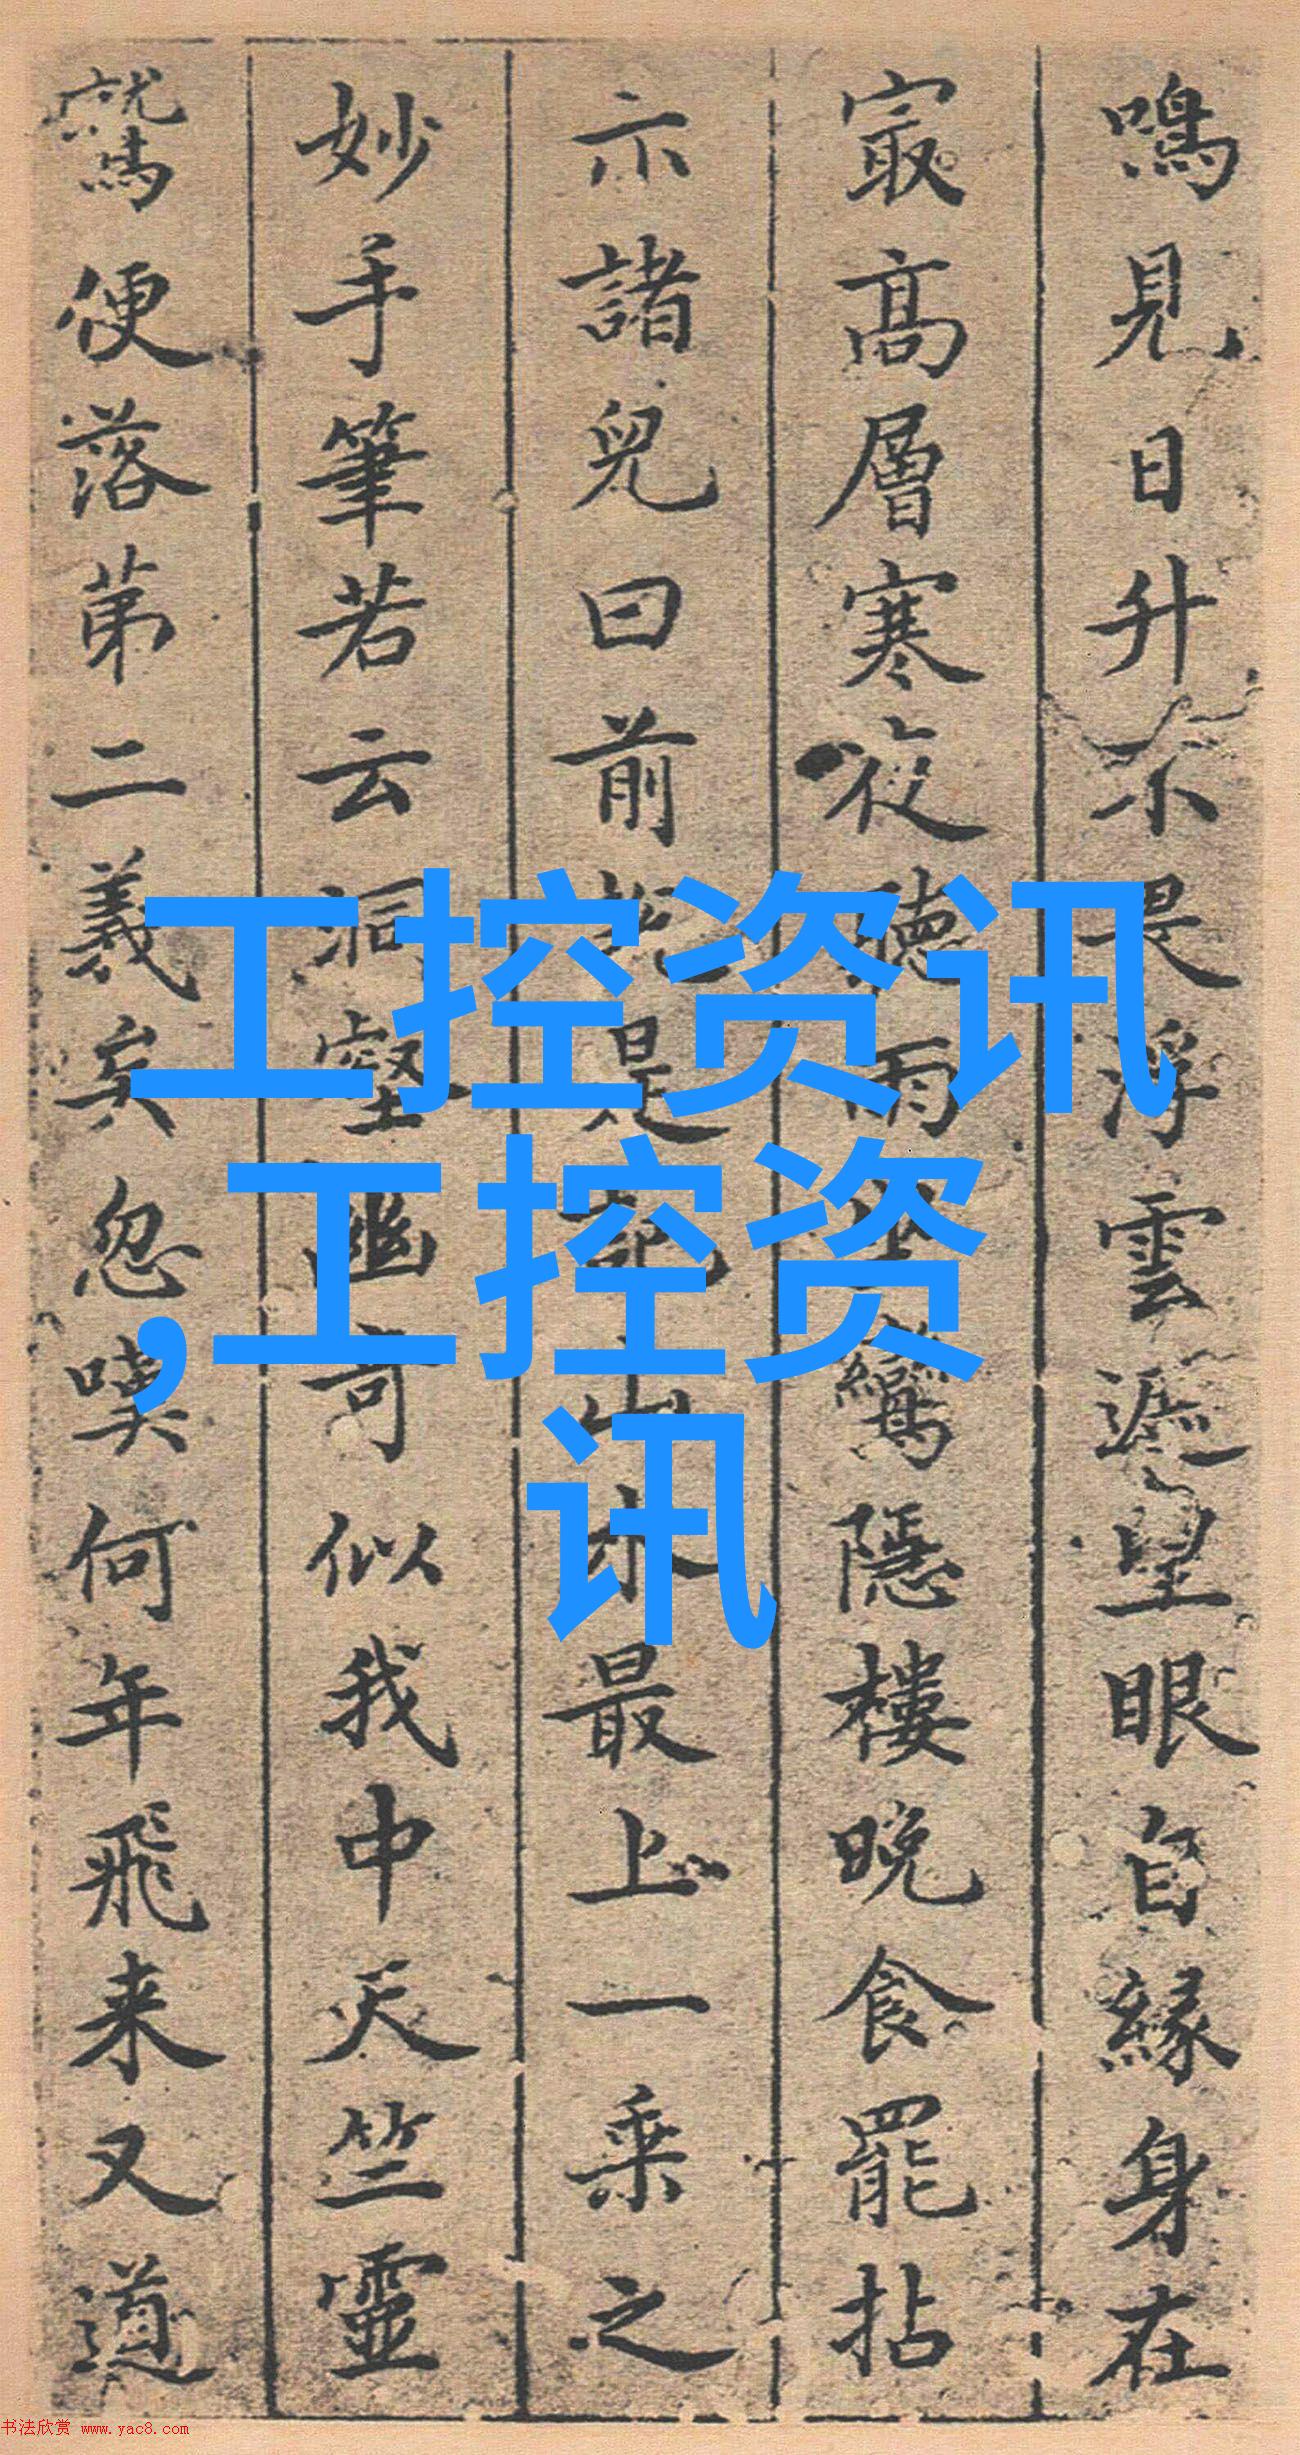 鳴見日升不畏浮雲遮望眼自緣身在
㝡高層寒夜聽雨鸞隱樓晚食罷拈
示諸兒曰前是山水最上一乘之
妙手筆若云洞壑幽奇似我中天竺靈
鷲便落第二義矣忽嘆何年飛来又道
工控资讯
,工控资
讯
书法欣赏 www.yac8.com